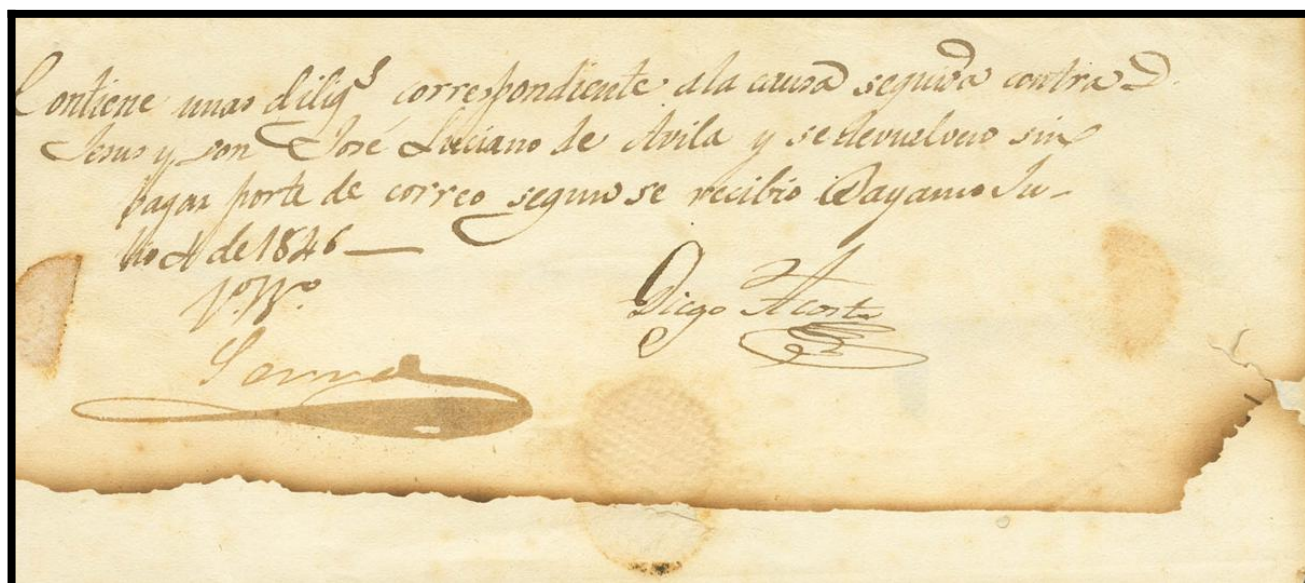 Contiene unas dilig.s correspondiente ala causa seguida contra D.
Jesus y don José Luciano de Avila y se devuelven sin
pagar porte de correo segun se recibio Bayamo Ju-
de 1846
Vo. Bo.
Diego Acosta